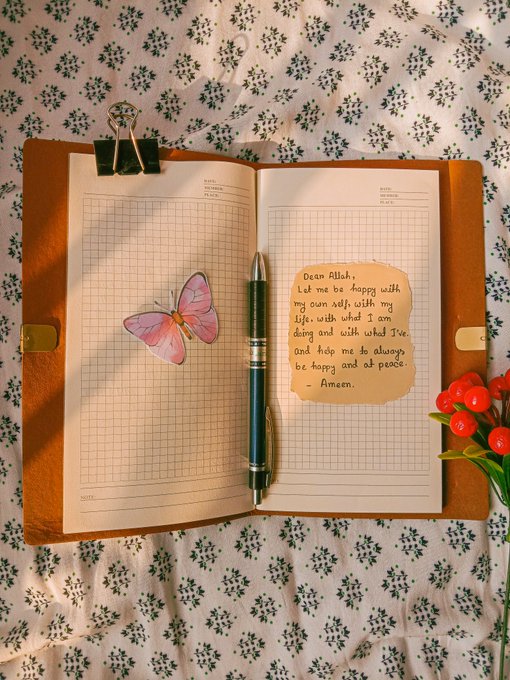 DATE:
MEMBER:
PLACE:
NOTE:
DATE:
MEMBER:
PLACE:
Dear Allah,
Let me be happy with
my own self, with my
life, with what I am
doing and with what I've.
And help me to always
be happy and at peace.
- Ameen.